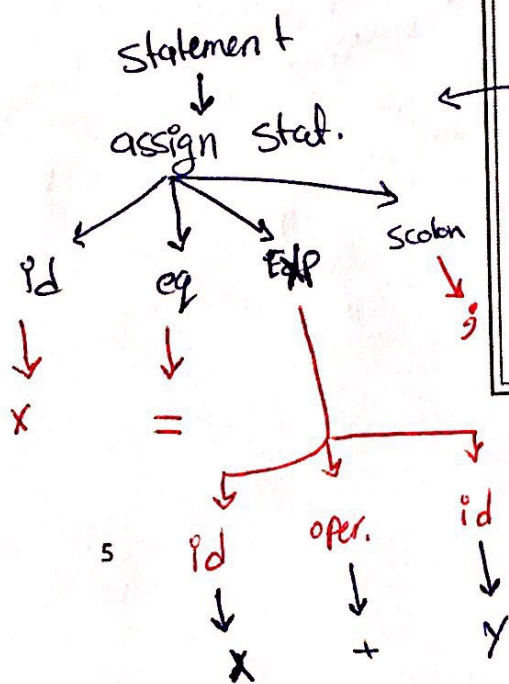 statement
assign stat.
id eq Exp scolon
;
x =
5 id oper. id
x + y